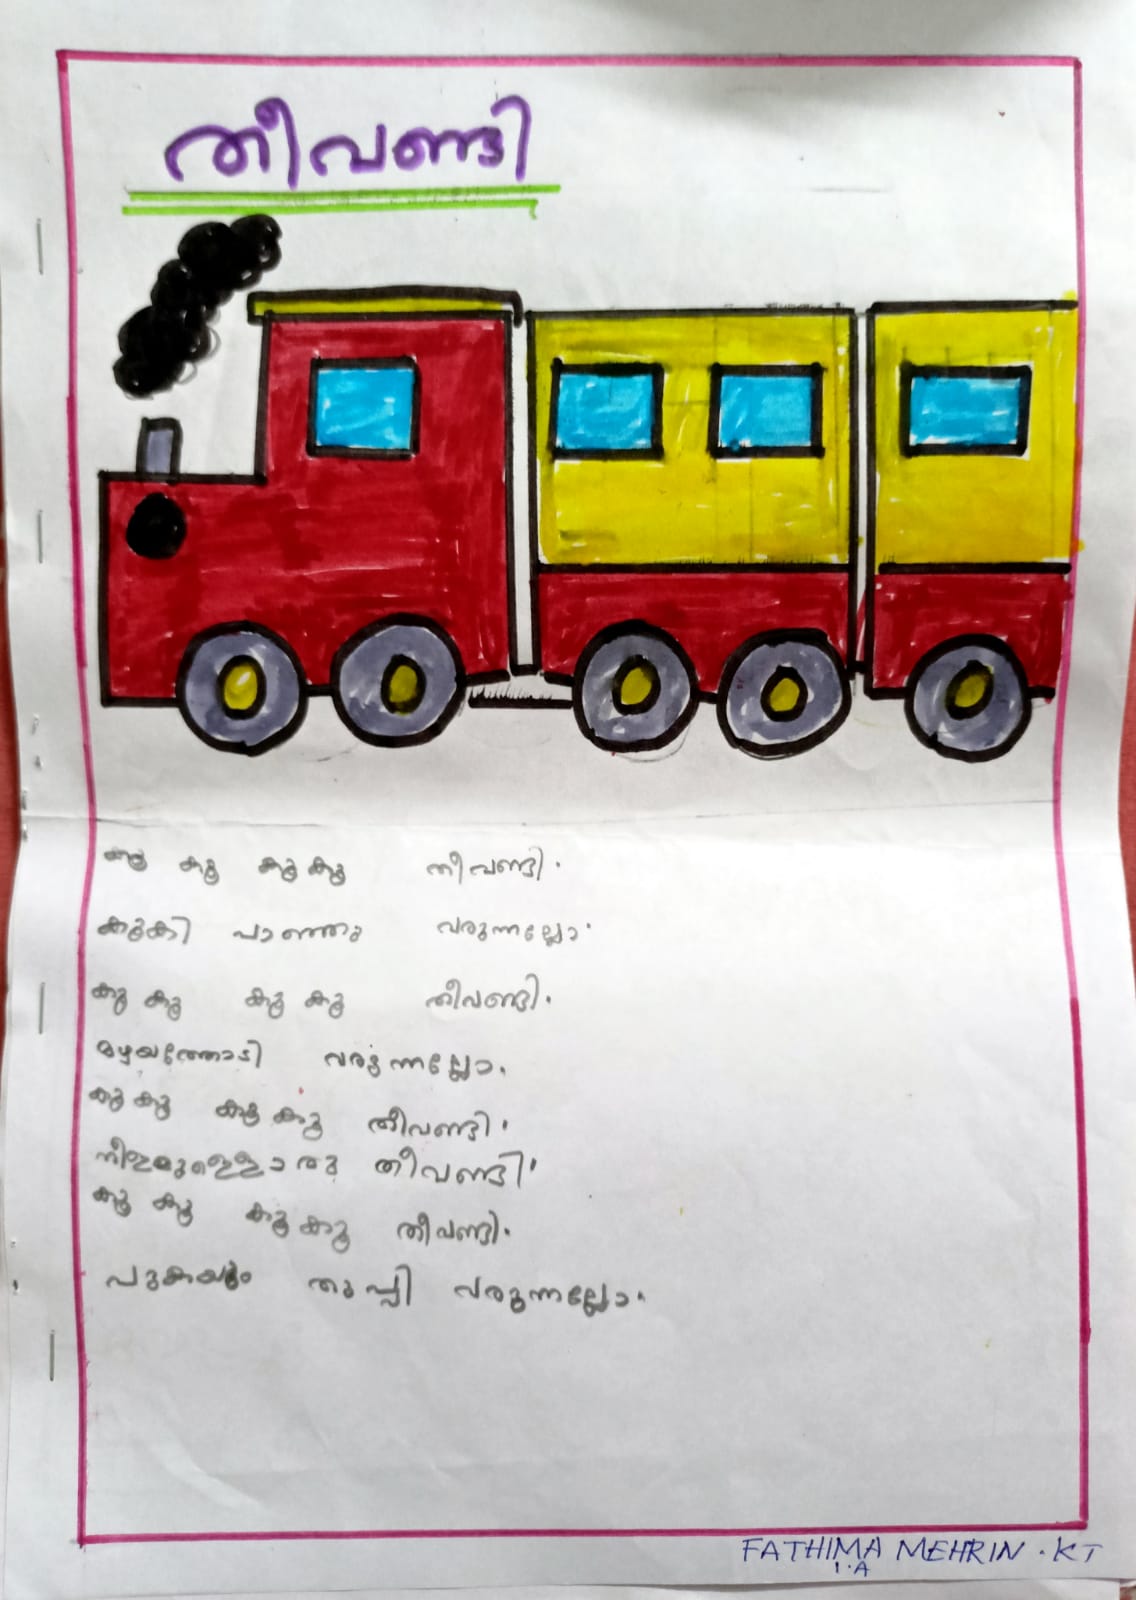 തീവണ്ടി
കൂ കൂ കൂകൂ തീവണ്ടി.
കൂകി പാഞ്ഞു വരുന്നല്ലോ.
കൂ കൂ കൂ കൂ തീവണ്ടി.
മഴയത്തോടി വരുന്നല്ലോ.
കൂ കൂ കൂ കൂ തീവണ്ടി.
നീളമുള്ളൊരു തീവണ്ടി.
കൂ കൂ കൂ കൂ തീവണ്ടി.
പുകയും തുപ്പി വരുന്നല്ലോ.
FATHIMA MEHRIN . KT
1.A